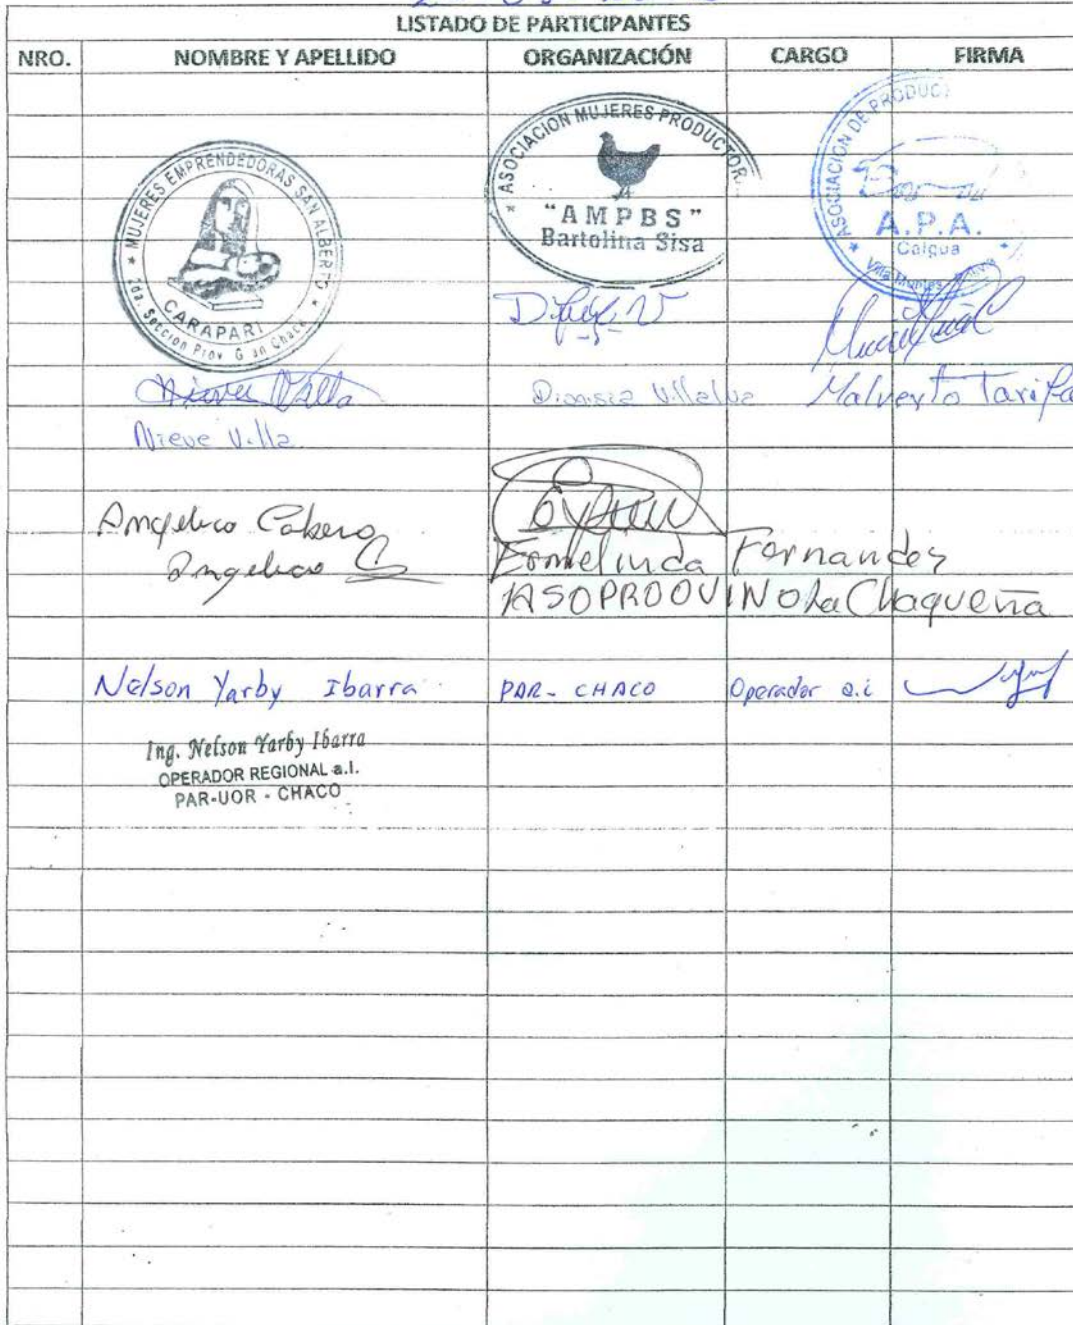 LISTADO DE PARTICIPANTES
NRO. NOMBRE Y APELLIDO ORGANIZACIÓN CARGO FIRMA
* MUJERES EMPRENDEDORAS SAN ALBERTO *
CARAPARI
2da. Sección Prov. G an Chaco
* ASOCIACION MUJERES PRODUCTOR
"AMPBS"
Bartolina Sisa
* ASOCIACION DE PRODUC
A.P.A.
Caigua
Villa Montes
Nieve Villa
Dionisia Villalva
Malverto Tarifa
Angelica Cabero
Angelica C
Ermelinda Fernandez
ASOPROOVINO La Chaqueña
Nelson Yarby Ibarra PAR- CHACO Operador a.i
Ing. Nelson Yarby Ibarra
OPERADOR REGIONAL a.i.
PAR-UOR - CHACO